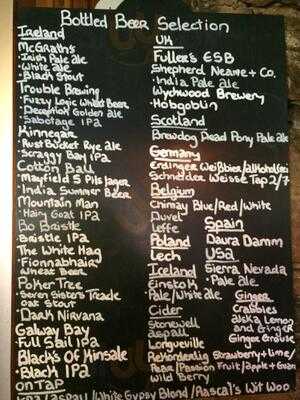 Bottled Beer Selection
Ireland
McGraths
• Irish Pale ale
• White ale
• Black Stout
Trouble Brewing
• Fuzzy Logic Wheat Beer
• Deception Golden ale
• Sabotage IPA
Kinnegar
• Rust Bucket Rye ale
• Scraggy Bay IPA
Cotton Ball
• Mayfield 5 Pils lager
• Indian Summer Beer
Mountain Man
• Hairy Goat IPA
Bo Bristle
• Bristle IPA
The White Hag
Fionnabhair
Wheat Beer
Poker Tree
• Seven Sisters Treacle
Oat Stout
• Dark Nirvana
Galway Bay
• Full Sail IPA
Black's Of Kinsale
• Black IPA
On TAP
IPA/aspall/White Gypsy Blond/Rascal's Wit Woo
UK
Fuller's ESB
Shepherd Neame + Co.
• India Pale Ale
Wychwood Brewery
• Hobgoblin
Scotland
Brewdog Dead Pony Pale ale
Germany
Erdinger Weißbier/alkoholfrei
Schneider Weisse Tap 2/7
Belgium
Chimay Blue/Red/White
Duvel
Leffe
Poland
Lech
Iceland
Einstok
• Pale/White ale
Cider
Stonewell
aspall
Longueville
Rekorderlig Strawberry + Lime/
Pear/Passion Fruit/apple + Guava
Wild Berry
Spain
Daura Damm
USA
Sierra Nevada
• Pale ale
Ginger
Crabbies
Lemon
and Ginger
Ginger Grouse